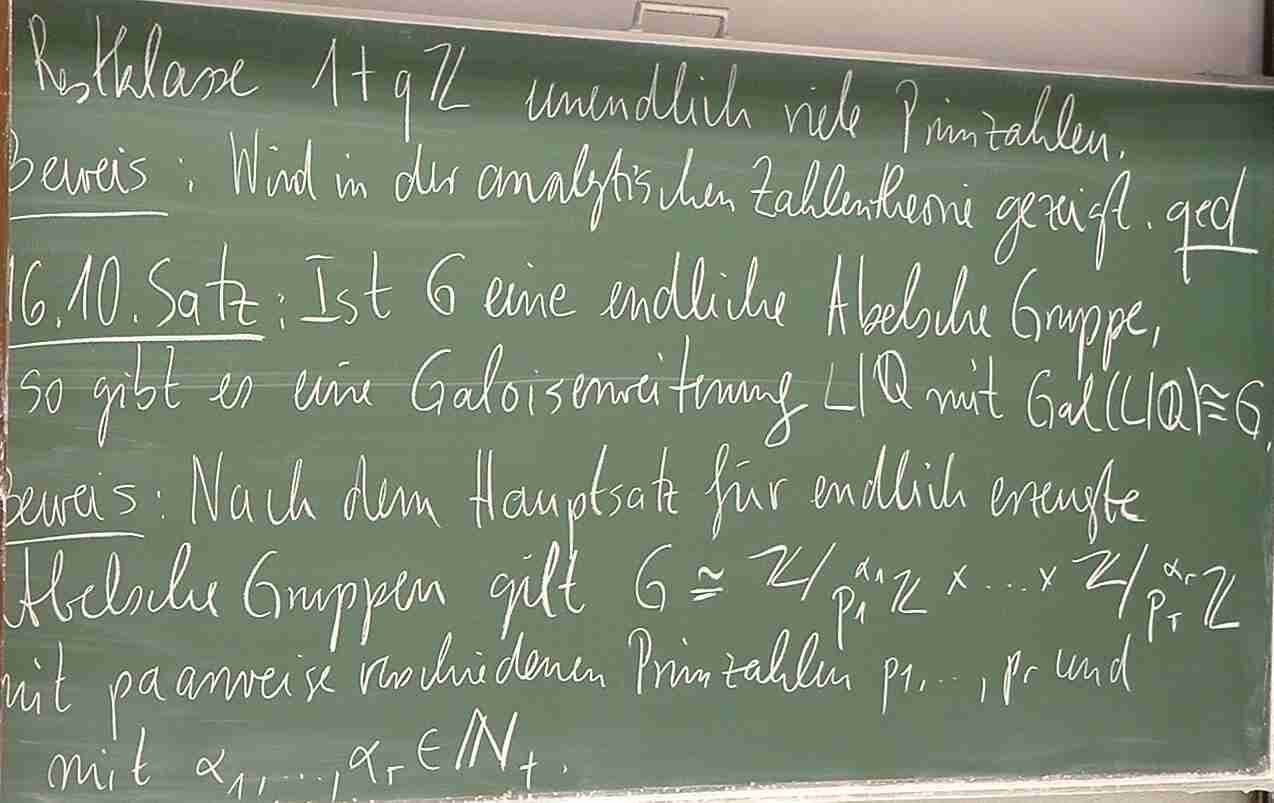 Restklasse 1+qℤ unendlich viele Primzahlen.
Beweis: Wird in der analytischen Zahlentheorie gezeigt. qed
16.10. Satz: Ist G eine endliche Abelsche Gruppe,
so gibt es eine Galoiserweiterung L|ℚ mit Gal(L|ℚ)≅G.
Beweis: Nach dem Hauptsatz für endlich erzeugte
Abelsche Gruppen gilt G ≅ ℤ/p₁^α₁ℤ × ... × ℤ/pᵣ^αᵣℤ
mit paarweise verschiedenen Primzahlen p₁,...,pᵣ und
mit α₁,...,αᵣ∈ℕ₊.